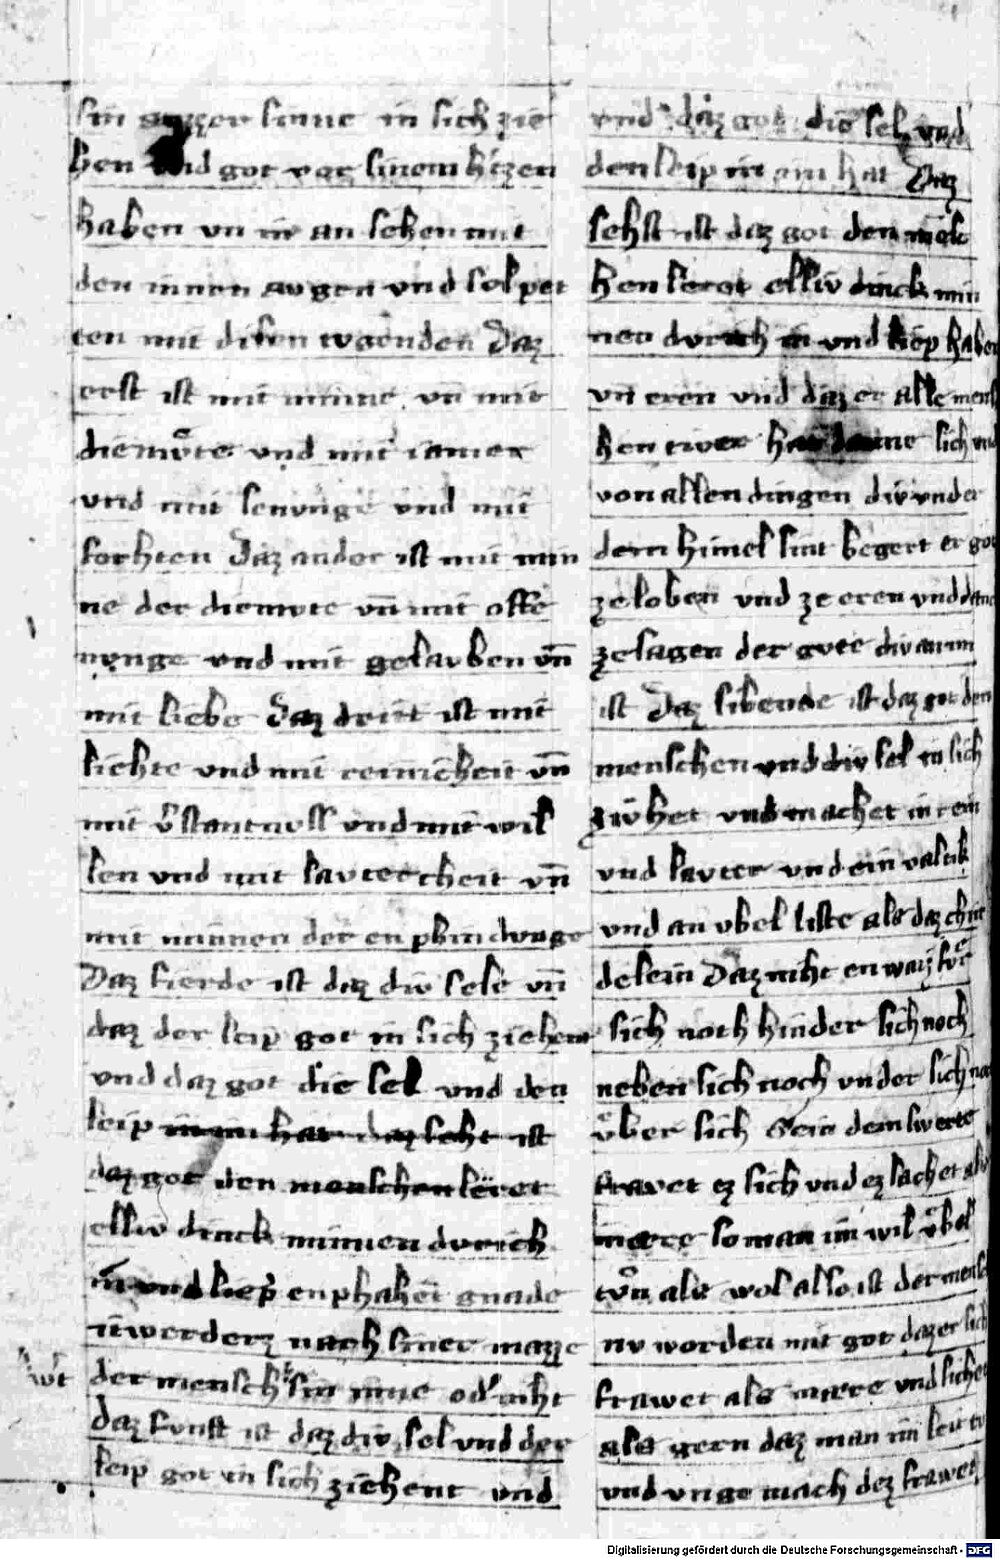 sin ſinne in ſich zie
hen vnd got vor ſinem h'tzen
haben vn in an ſehen mit
den innen augen vnd ſol
ten mit diſen Daz
erſt iſt mit minne vn̄ mit
diemvͦte vnd mit iamer
vnd mit ſenunge vnd mit
forhten Daz ander iſt mit min
ne der diemvte vn̄ mit offe
nunge vnd mit gelauben vn̄
mit liebe Daz drirt iſt mit
liehte vnd mit reinicheit vn̄
mit v'ſtantnvſſ vnd mit wil
len vnd mit lavtercheit vn̄
mit minnen der enpbindvnge
Daz fierde iſt daz div ſele vn̄
daz der leip got in ſich ziehent
vnd daz got die ſel vnd den
leip in im hat daz ſeht iſt
daz got den menſchen leret
elliv dinck minnen dvrich
in vnd liep enphahet gnade
nach ſiner mazze
wt
der menſch ſin inne od' niht
Daz funft iſt daz div ſel vnd der
leip got in ſich ziehent vnd
vnd daz got die ſel vnd
den leip in im hat Daz
ſehſt iſt daz got den
hen leret elliv dinck min
nen durich in vnd liep haben
vn̄ eren vnd daz er alle
hen ſich vnd
von allen dingen div vnder
dem himel ſint begert er got
ze loben vnd ze eren vnd
ze ſagen der gvte div an im
iſt Daz ſibende iſt daz got den
menſchen vnd div ſel in ſich
zivhet vnd machet in rein
vnd lavter vnd ein valtik
vnd an vbel liſte als daz chint
delein Daz niht en waiz fvͤr
ſich noch hinder ſich noch
neben ſich noch vnder ſich noch
vͤber ſich Sein dem ſwerte
frawet ez ſich vnd ez lachet
mere ſo man im wil vͤbel
tvͦn als wol alſo iſt der menſch
nv worden mit got daz er ſich
frawet als mere vnd ſicher
als gern daz man im
vnd vnge mach dez frawet
Digitalisierung gefördert durch die Deutsche Forschungsgemeinschaft - DFG